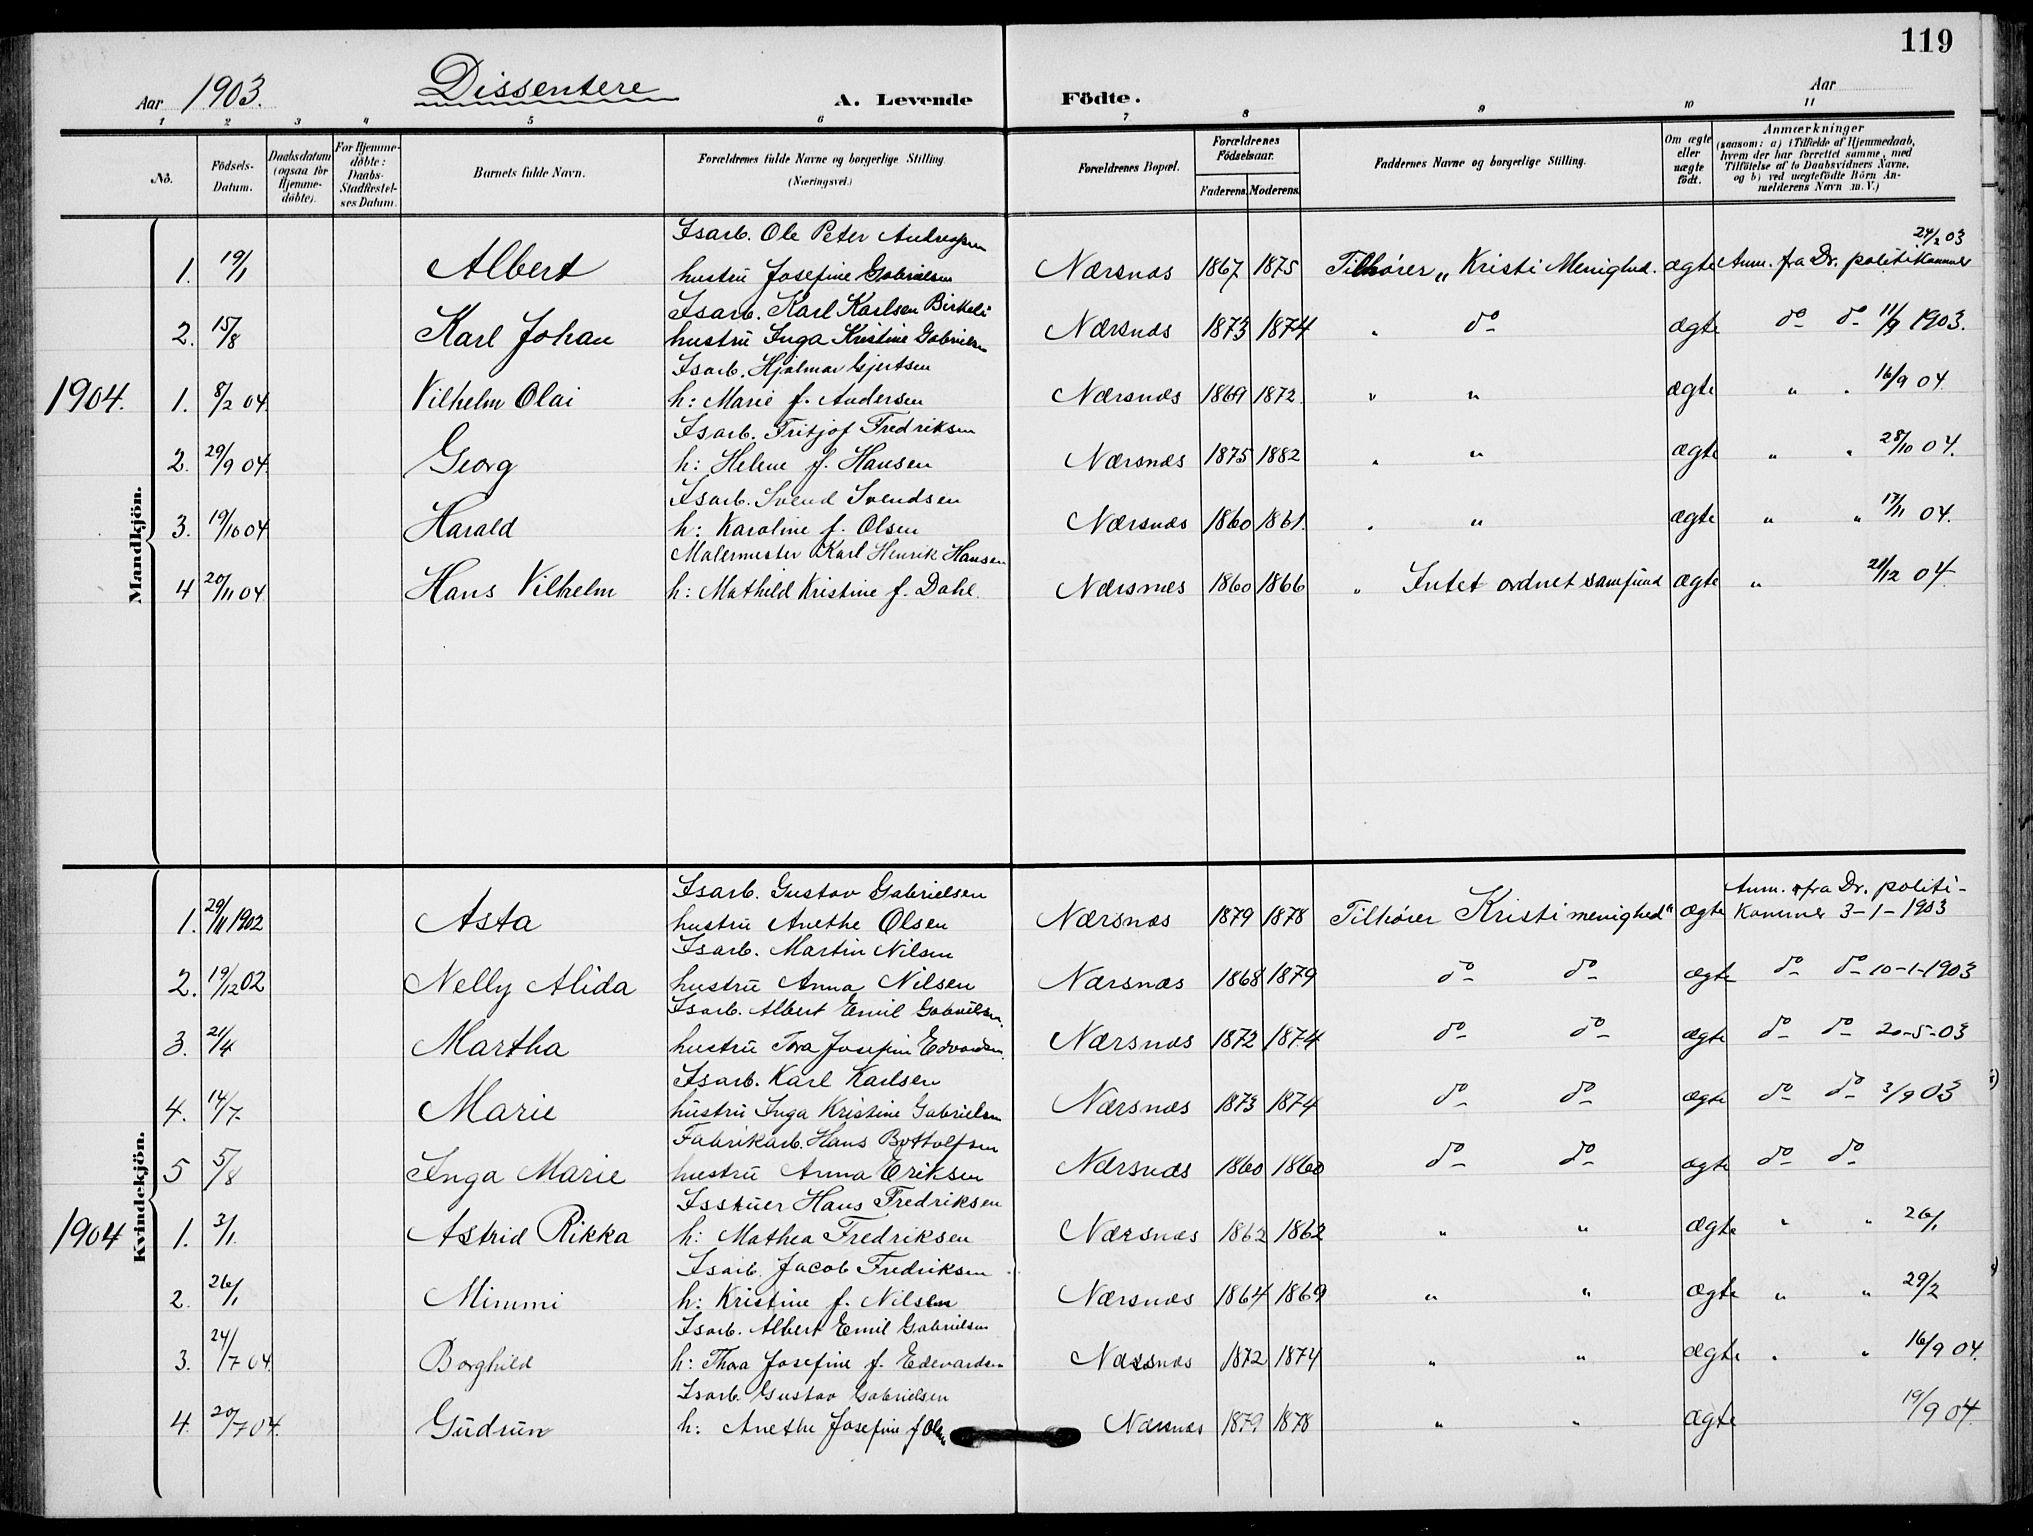 119
Aar 1903. Dissentere A. Levende Födte. Aar
1 2 3 4 5 6 7 8 9 10 11
Nö. Födsels-Datum. Daabsdatum (ogsaa for Hjemme-döbte). For Hjemme-döbte: Daabs-Stadfæstel-ses Datum. Barnets fulde Navn. Forældrenes fulde Navne og borgerlige Stilling. (Næringsvei.) Forældrenes Bopæl. Forældrenes Födselsaar. Faderens. Moderens. Faddernes Navne og borgerlige Stilling. Om ægte eller uægte födt. Anmærkninger (saasom: a) i Tilfælde af Hjemmedaab, hvem der har forrettet samme, med Tilföielse af to Daabsvidners Navne, og b) ved uægtefödte Börn Anmelderens Navn m. V.)
Mandkjön.
Isarb. Ole Peter Andreasen 24/2 03
1. 19/1 Albert hustru Josefine Gabrielsen Nærsnæs 1867 1875 Tilhører „ Kristi Menighed. ægte Anm. fra Dr. politikammer
Isarb. Karl Karlsen Birkeli
2. 15/8 Karl Johan hustru Inga Kristine Gabrielsen Nærsnæs 1873 1874 „ do ægte do do 11/9 1903.
Isarb. Hjalmar Gjertsen
1904. 1. 8/2 04. Vilhelm Olai h: Marie f. Andersen Nærsnæs 1869 1872 „ „ ægte „ „ 16/9 04.
Isarb. Fritjof Fredriksen
2. 29/9 04. Georg h: Helene f. Hansen Nærsnæs 1875 1882 „ „ ægte „ „ 28/10 04.
Isarb. Svend Svendsen
3. 19/10 04 Harald h: Karoline f. Olsen Nærsnæs 1860 1861. „ „ ægte „ „ 17/11 04.
Malermester Karl Henrik Hansen
4 20/11 04 Hans Vilhelm h: Mathild Kristine f. Dahl. Nærsnes 1860 1866 „ Intet ordnet samfund ægte „ 21/12 04
Kvindekjön.
Isarb. Gustav Gabrielsen Anm. fra Dr. politi-
1. 29/11 1902 Asta hustru Anethe Olsen Nærsnæs 1879 1878 Tilhører Kristi menighed" ægte kammer 3-1-1903
Isarb. Martin Nilsen
2. 19/12 02 Nelly Alida hustru Anna Nilsen Nærsnæs 1868 1879 do do ægte do do 10-1-1903
Isarb. Albert Emil Gabrielsen.
3. 21/4 Martha hustru Tora Josefine Edvardsen. Nærsnæs 1872 1874 do do ægte do do 20-5-03
Isarb. Karl Karlsen
4. 14/7 Marie hustru Inga Kristine Gabrielsen Nærsnæs 1873 1874 do do ægte do do 3/9 03
Fabrikarb. Hans Bottolfsen
5 5/8 Inga Marie hustru Anna Eriksen Nærsnæs 1860 1860 do do ægte do do
Isskuer Hans Fredriksen
1904 1. 3/1. Astrid Rikka h: Mathea Fredriksen Nærsnæs 1862 1862 „ „ ægte „ „ 26/1
Isarb. Jacob Fredriksen
2. 26/1 Mimmi h: Kristine f. Nilsen Nærsnæs 1864 1869 „ „ ægte „ „ 29/2
Isarb. Albert Emil Gabrielsen
3. 24/7 04. Borghild h: Thora Josefine f. Edevardsen Nærsnæs 1872 1874 „ „ ægte „ „ 16/9 04.
Isarb. Gustav Gabrielsen
4. 20/7 04. Gudrun h: Anethe Josefine f Olsen Nærsnæs 1879 1878 „ „ ægte 19/9 04.